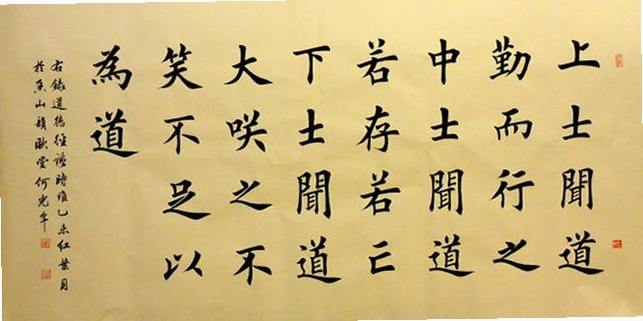 上士聞道
勤而行之
中士聞道
若存若亡
下士聞道
大咲之不
笑不足以
為道
右錄道德經語時維乙未紅葉月
於山堂何光年